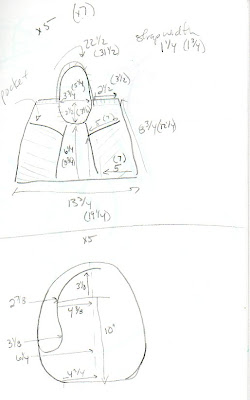 x5 (x7)
strap width
1 1/4 (1 3/4)
22 1/2
(31 1/2)
pocket
3 3/4
2 1/2
(3 1/2)
5 (7)
8 3/4
6 1/4
(8 3/4)
(7)
5
13 3/4
(19 1/4)
x5
3 1/8
2 7/8
4 3/8
3 1/8
10"
4 3/4